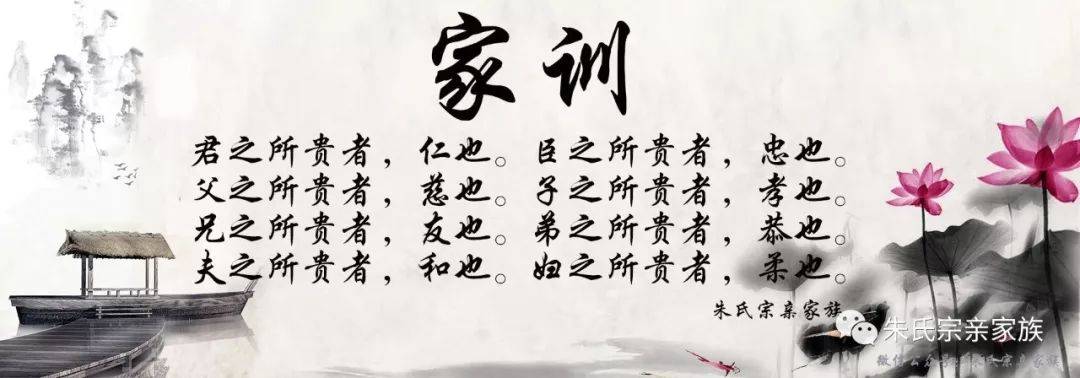 家训
君之所贵者，仁也。臣之所贵者，忠也。
父之所贵者，慈也。子之所贵者，孝也。
兄之所贵者，友也。弟之所贵者，恭也。
夫之所贵者，和也。妇之所贵者，柔也。
朱氏宗亲家族
朱氏宗亲家族
微信公众号 朱氏宗亲家族